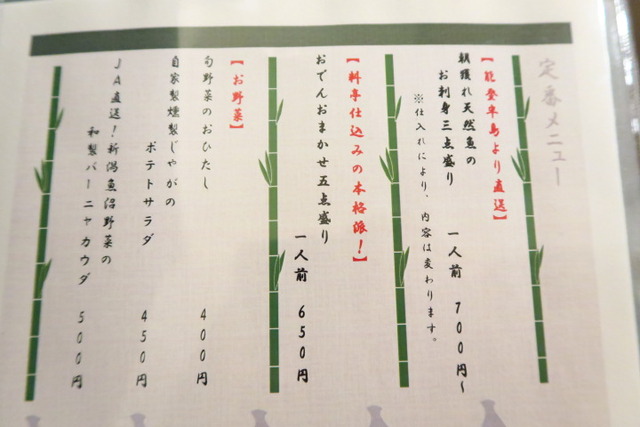 定番メニュー
【能登半島より直送】
朝獲れ天然魚の
お刺身三点盛り
一人前 700円~
※仕入れにより、内容は変わります。
【料亭仕込みの本格派!】
おでんおまかせ五点盛り
一人前 650円
【お野菜】
旬野菜のおひたし 400円
自家製燻製じゃがの
ポテトサラダ 450円
JA直送!新潟魚沼野菜の
和製バーニャカウダ 500円